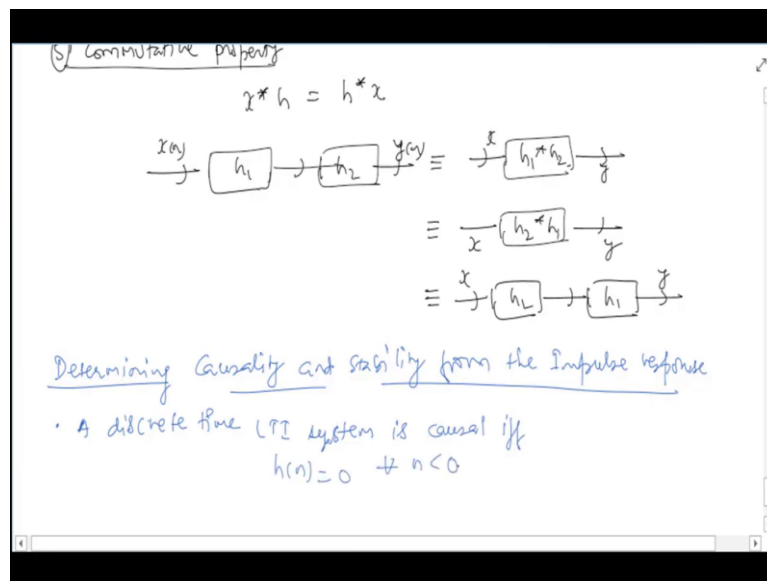 5) Commutative property
x * h = h * x
x(n) h₁ h₂ y(n) ≡ x h₁ * h₂ y
≡ x h₂ * h₁ y
≡ x h₂ h₁ y
Determining Causality and stability from the Impulse response
· A discrete time LTI system is causal iff
h(n) = 0 ∀ n < 0